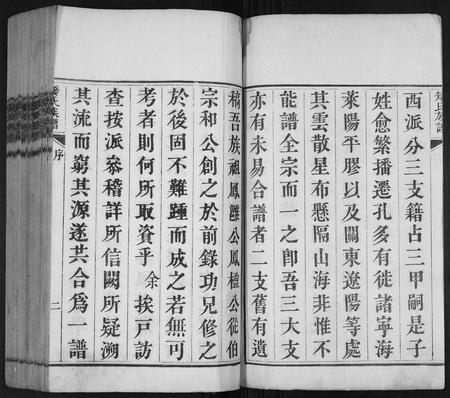 西派分三支籍占三甲嗣是子
姓愈繁播遷孔多有徙諸寧海
萊陽平膠以及關東遼陽等處
其雲散星布懸隔山海非惟不
能譜全宗而一之卽吾三大支
亦有未易合譜者二支舊有遺
稿吾族祖鳳
公鳳檀公從伯
宗和公創之於前錄功兄修之
於後固不難踵而成之若無可
考者則何所取資乎余挨戶訪
查按派叅稽詳所信闕所疑溯
其流而窮其源遂共合爲一譜
氏族譜
序
二